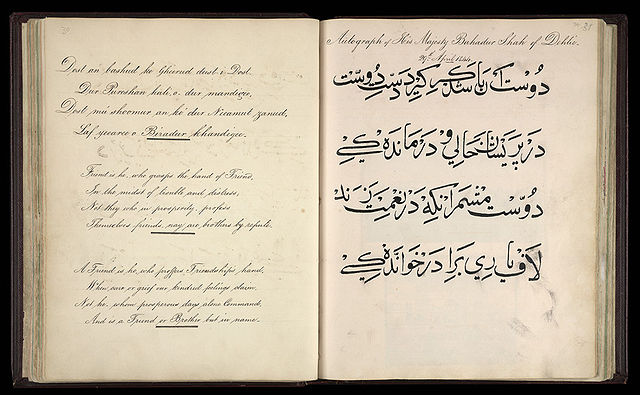 Dost an bashud ke Gheerud dust i Dost
Dur Pureshan hali, o, dur mandigee,
Dost má shoomur an ko dur Neeamut zunud,
Láf yaaree o Biradur khandigee.
Friend is he, who grasps the hand of Friend,
In the midst of trouble and distress,
Not they who in prosperity, profess
Themselves friends, nay are brothers by repute.
A Friend is he, who proffers Friendship's hand,
When care or grief our kindred feelings claim,
Not he, whom prosperous days alone Command,
And is a Friend or Brother but in name.
Autograph of His Majesty Bahadur Shah of Dehlie.
29th April 1844
دوست آن باشد که گیرد دست دوست
در پریشان حالی و درماندگی
دوست مشمر آنکه در نعمت زند
لاف یاری برادر خواندگی